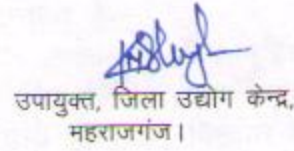 उपायुक्त, जिला उद्योग केन्द्र,
महराजगंज।